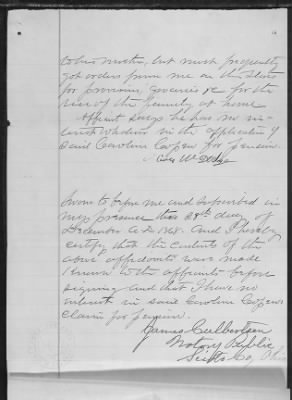 to his mother, but most frequently
got orders from me on the Store
for provisions, groceries &c for the
use of the family at home
Affiant says he has no in-
terest whatever in the application of
said Caroline Cooper for pension.
Sworn to before me and subscribed in
my presence this 28th day of
December A.D. 1868. And I hereby
certify that the contents of the
above affidavits were made
known to the affiants before
signing and that I have no
interest in said Caroline Coopers
claim for pension.
James Culbertson
Notary Public
Scioto Co, O.